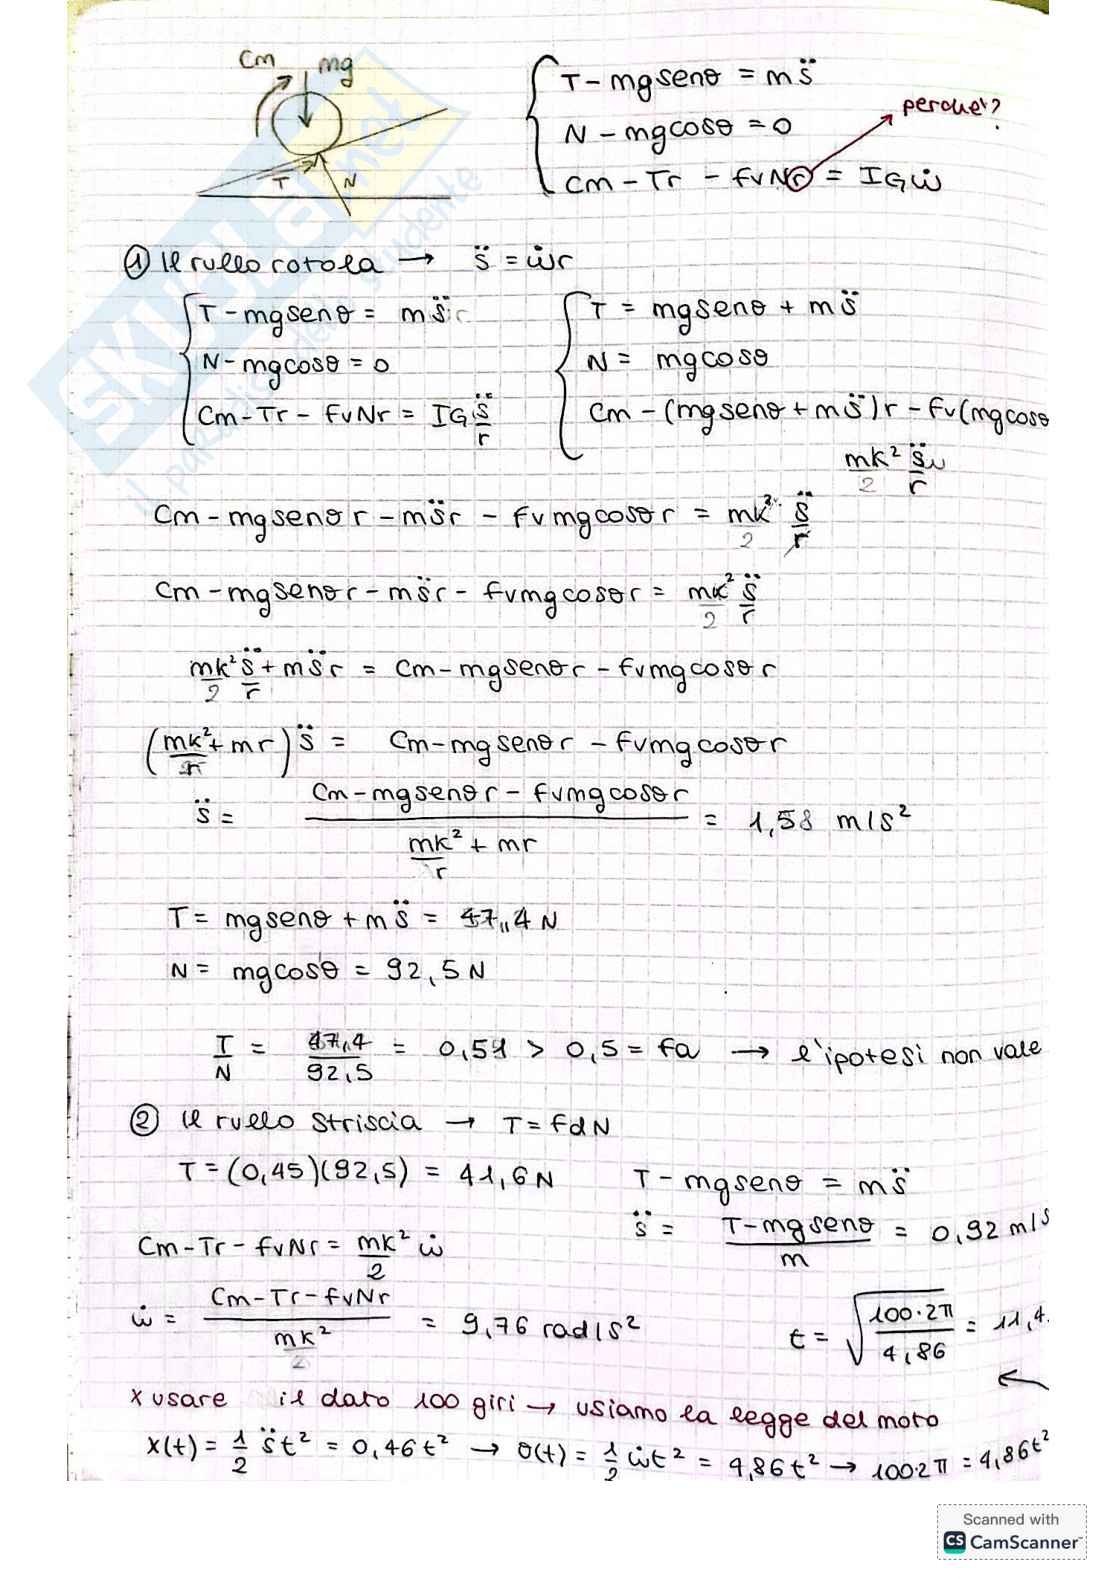 Cm mg
T N
T - mg senθ = m s̈
N - mg cosθ = 0
perche'?
Cm - Tr - fvNr = IG ω̇
① Il rullo rotola → s̈ = ω̇r
T - mg senθ = m s̈
N - mg cosθ = 0
Cm - Tr - fvNr = IG s̈/r
T = mg senθ + m s̈
N = mg cosθ
Cm - (mg senθ + m s̈)r - fv(mg cosθ
mk²/2 s̈/r
Cm - mg senθ r - m s̈ r - fv mg cosθ r = mk²/2 s̈/r
Cm - mg senθ r - m s̈ r - fv mg cosθ r = mk²/2 s̈/r
mk²/2 s̈/r + m s̈ r = Cm - mg senθ r - fv mg cosθ r
(mk²/r + mr) s̈ = Cm - mg senθ r - fv mg cosθ r
s̈ = (Cm - mg senθ r - fv mg cosθ r)/(mk²/r + mr) = 1,58 m/s²
T = mg senθ + m s̈ = 47,4 N
N = mg cosθ = 92,5 N
T/N = 47,4/92,5 = 0,51 > 0,5 = fa → l'ipotesi non vale
② Il rullo striscia → T = fdN
T = (0,45)(92,5) = 41,6 N
T - mg senθ = m s̈
s̈ = (T - mg senθ)/m = 0,92 m/s
Cm - Tr - fvNr = mk²/2 ω̇
ω̇ = (Cm - Tr - fvNr)/(mk²/2) = 9,76 rad/s²
t = √(100·2π/4,86) = 11,4
x usare il dato 100 giri → usiamo la legge del moto
x(t) = 1/2 s̈t² = 0,46t² → θ(t) = 1/2 ω̇t² = 4,86t² → 100·2π = 4,86t²
Scanned with
CS CamScanner